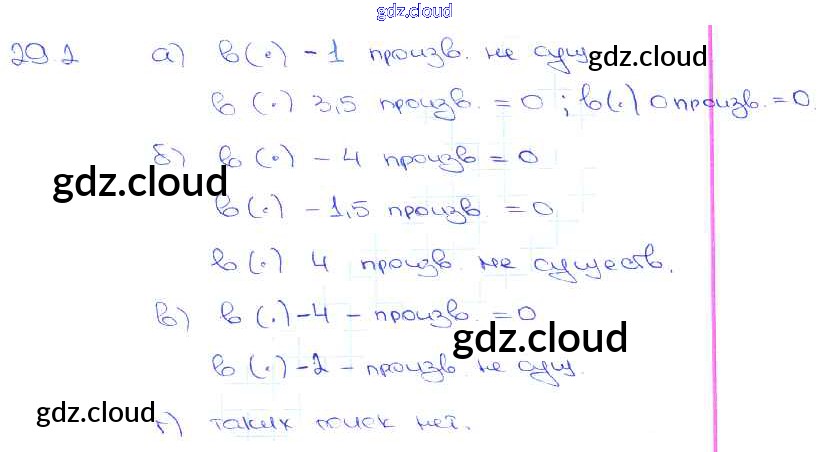 gdz.cloud
29.2 а) в (.) - 1 произв. не сущ gdz.cloud
в (.) 3,5 произв. = 0 ; в(.) 0 произв. = 0.
б) в (.) - 4 произв = 0
gdz.cloud
в (.) - 1,5 произв. = 0
в (.) 4 произв. не существ.
в) в (.) -4 - произв. = 0
gdz.cloud
в (.) -2 - произв. не сущ.
gdz.cloud
г) таких точек нет.